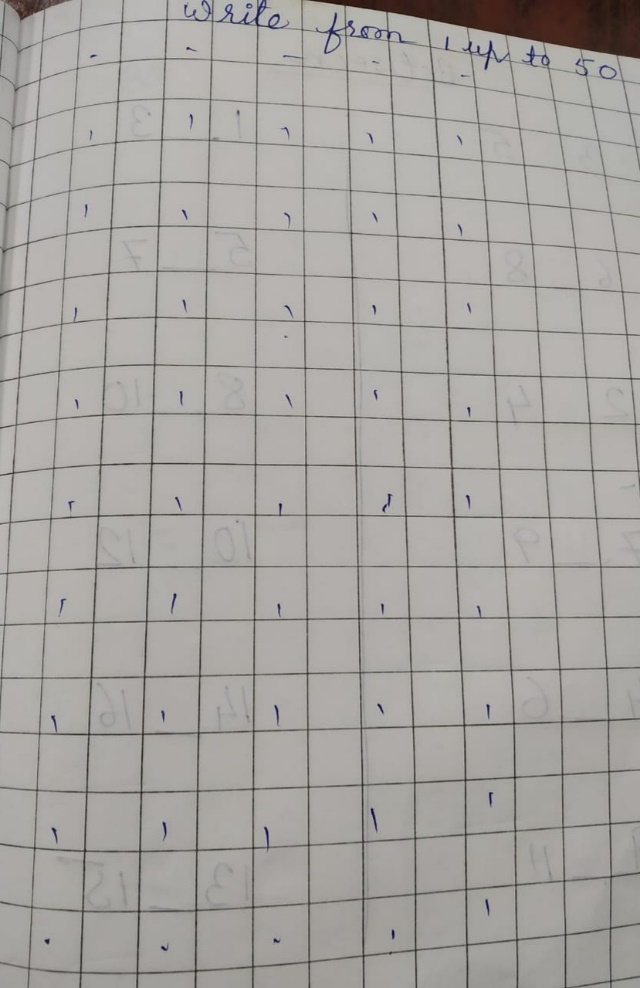 Write from 1 up to 50